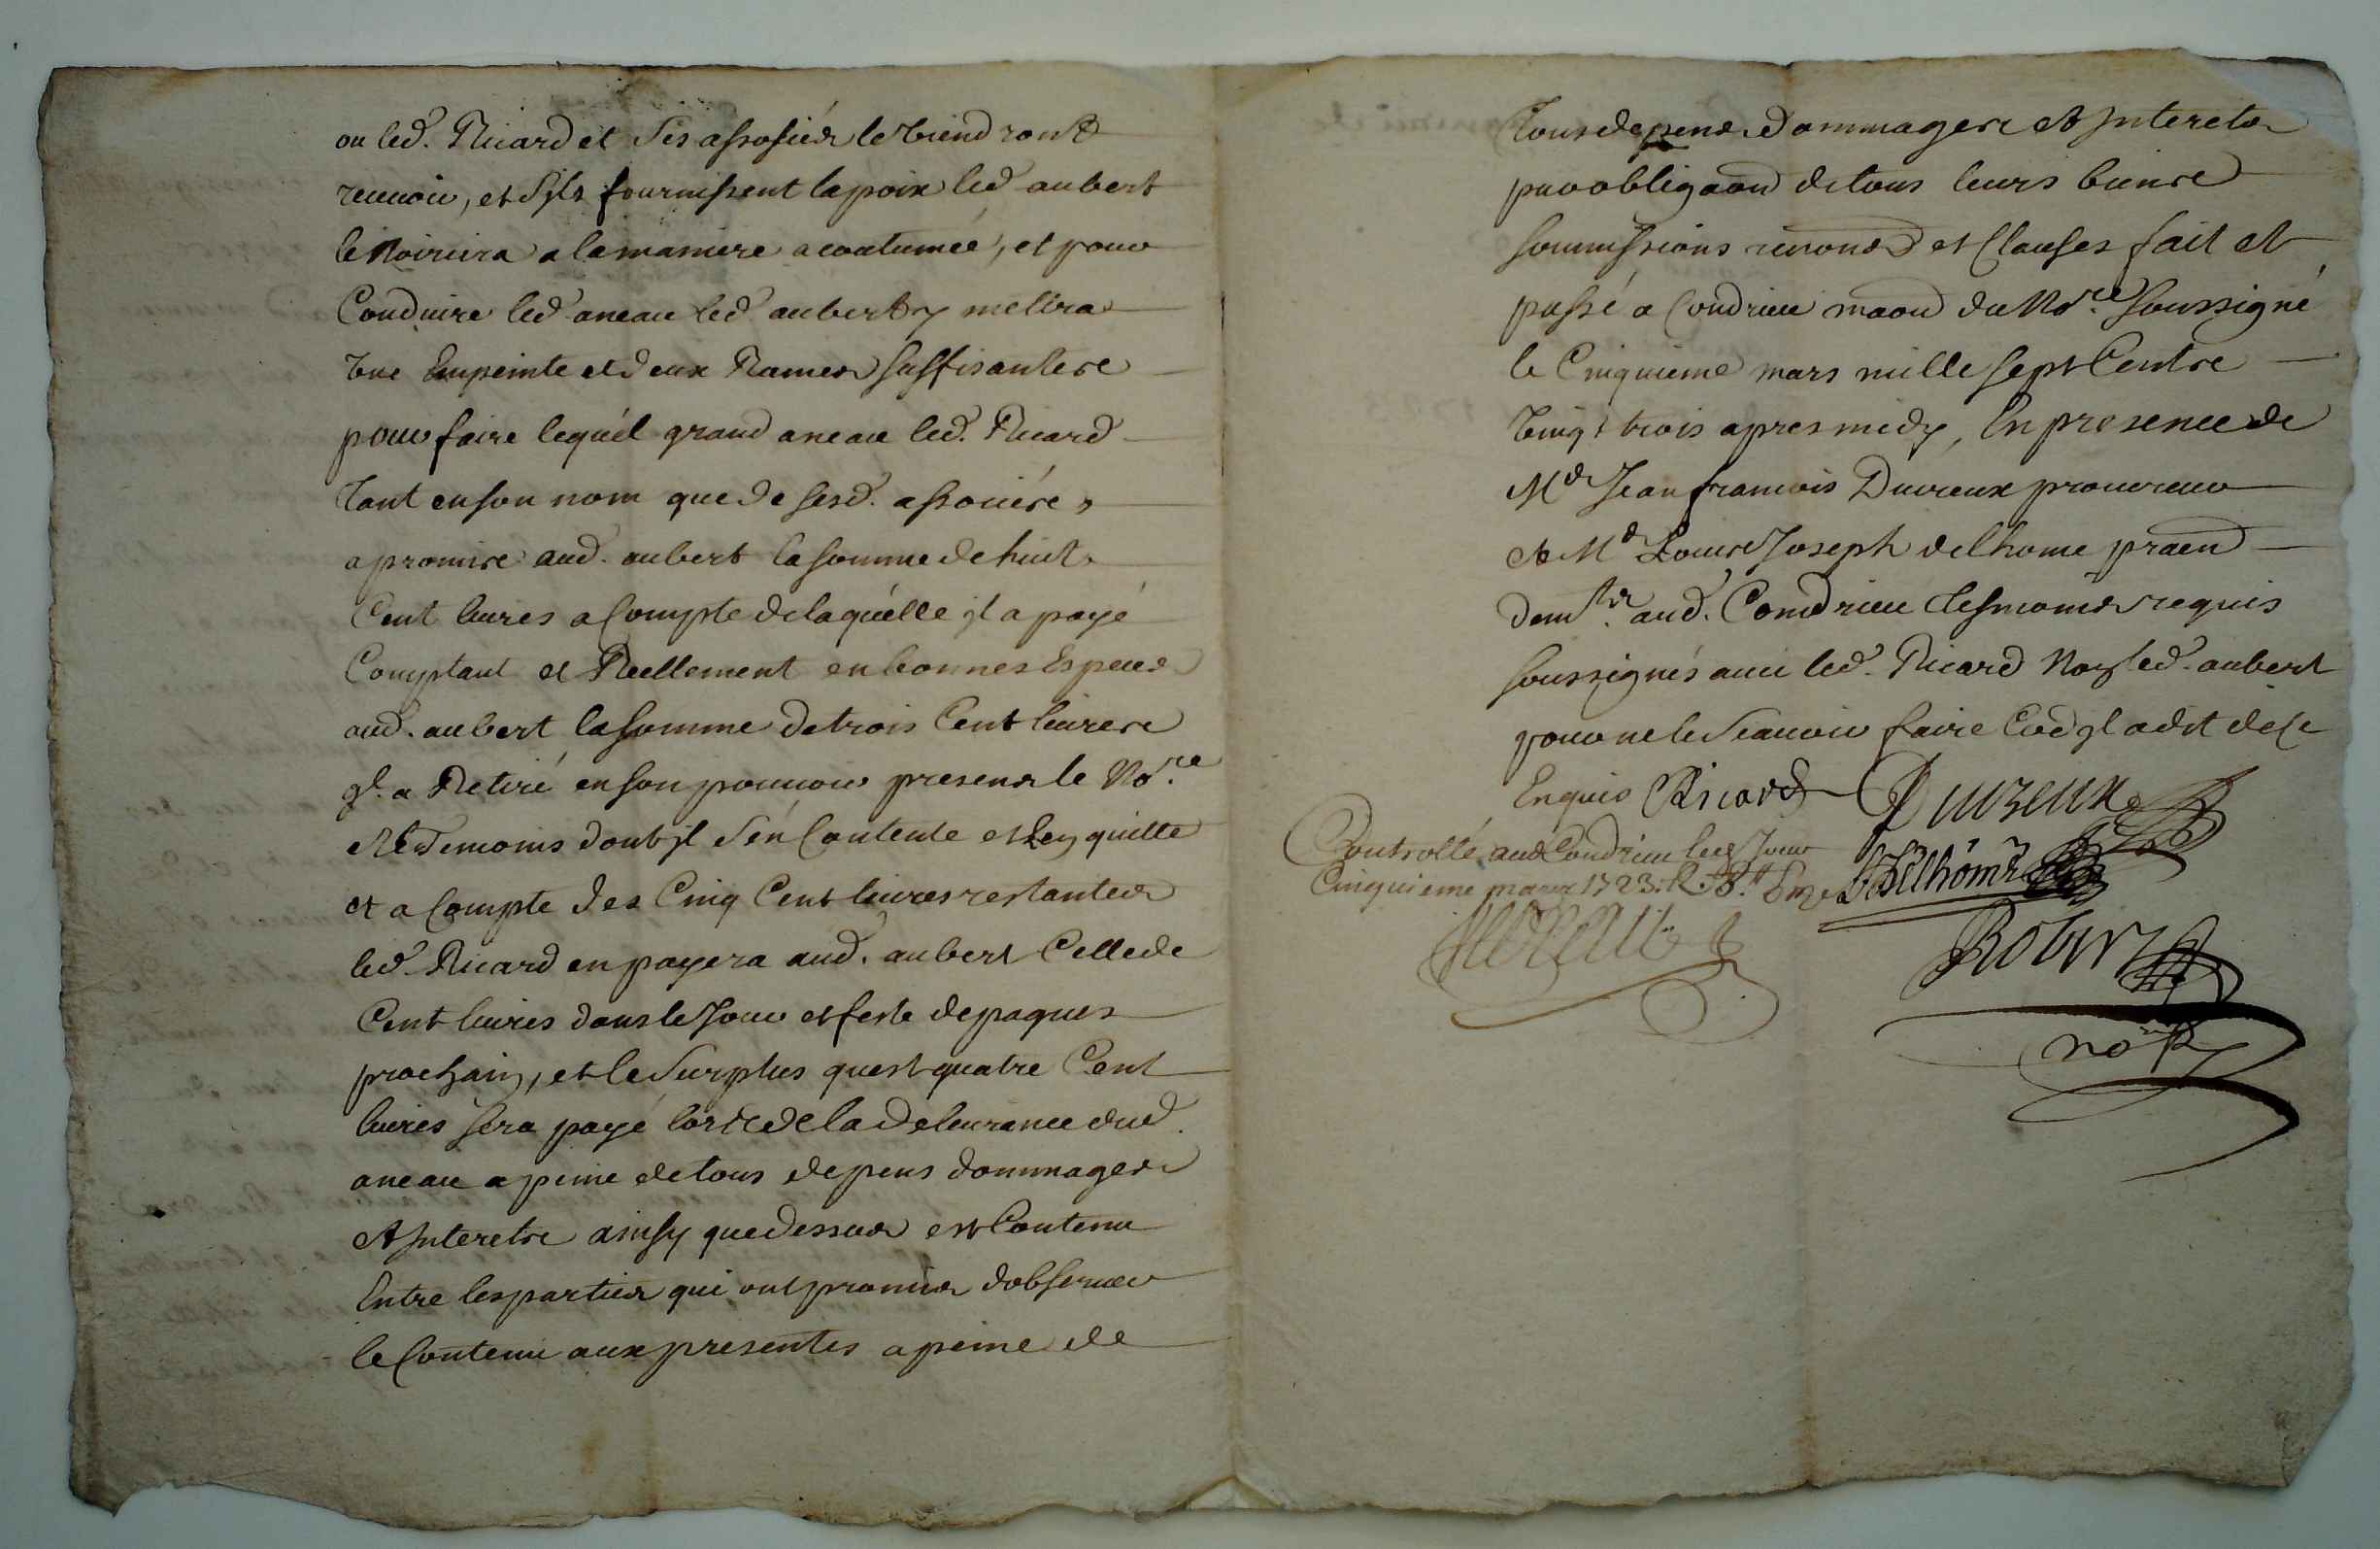 ou led. Ricard et ses assosiés le viendront
receuoir, et syls fournissent la poix led aubert
le noircira a la maniere acoutumée, et pour
Conduire led aneau led aubert y mettra
vne Empeinte et deux Rames suffisantes
pour faire lequél grand aneau led. Ricard
tant en son nom que de sesd. associés,
a promis aud. aubert la somme de huit
Cent liures a Compte de laquélle jl a payé
Comptant et Reellement en bonnes Especes
aud. aubert la somme de trois Cent liures
ql. a Retiré en son pouuoir presens le No.re
et tesmoins dont jl s'én Contente et l'en quitte
et a Compte des Cinq Cent liures restantes
led Ricard en payera aud. aubert Celle de
Cent liures dans le Jour et feste de paques
prochain, et le surplus quest quatre Cent
liures sera payé lors de la deleurance dud.
aneau a peine de tous depens dommages
et Interets ainsy que dessus est Contenu
Entre les parties qui ont promis dobseruer
le Contenu aux presentes a peine de
Tous depens dommages et Interets
par obligaon de tous leurs biens
soumissions renons et Clauses fait et
passé a Condrieu maon du No.re soussigné
le Cinquieme mars mille sept Cents
vingt trois apres midy, En presence de
Me Jean francois Duvreux procureur
et Me Louis Joseph delhome praen
demts. aud. Condrieu tesmoins requis
soussignés auec led. Ricard Non led. aubert
pour ne le scauoir faire Co'e jl a dit de ce
Enquis Ricard Duvreux
Controllé aud Condrieu led Jour
Cinquieme mars 1723. R. Delhome
Robert
no.re